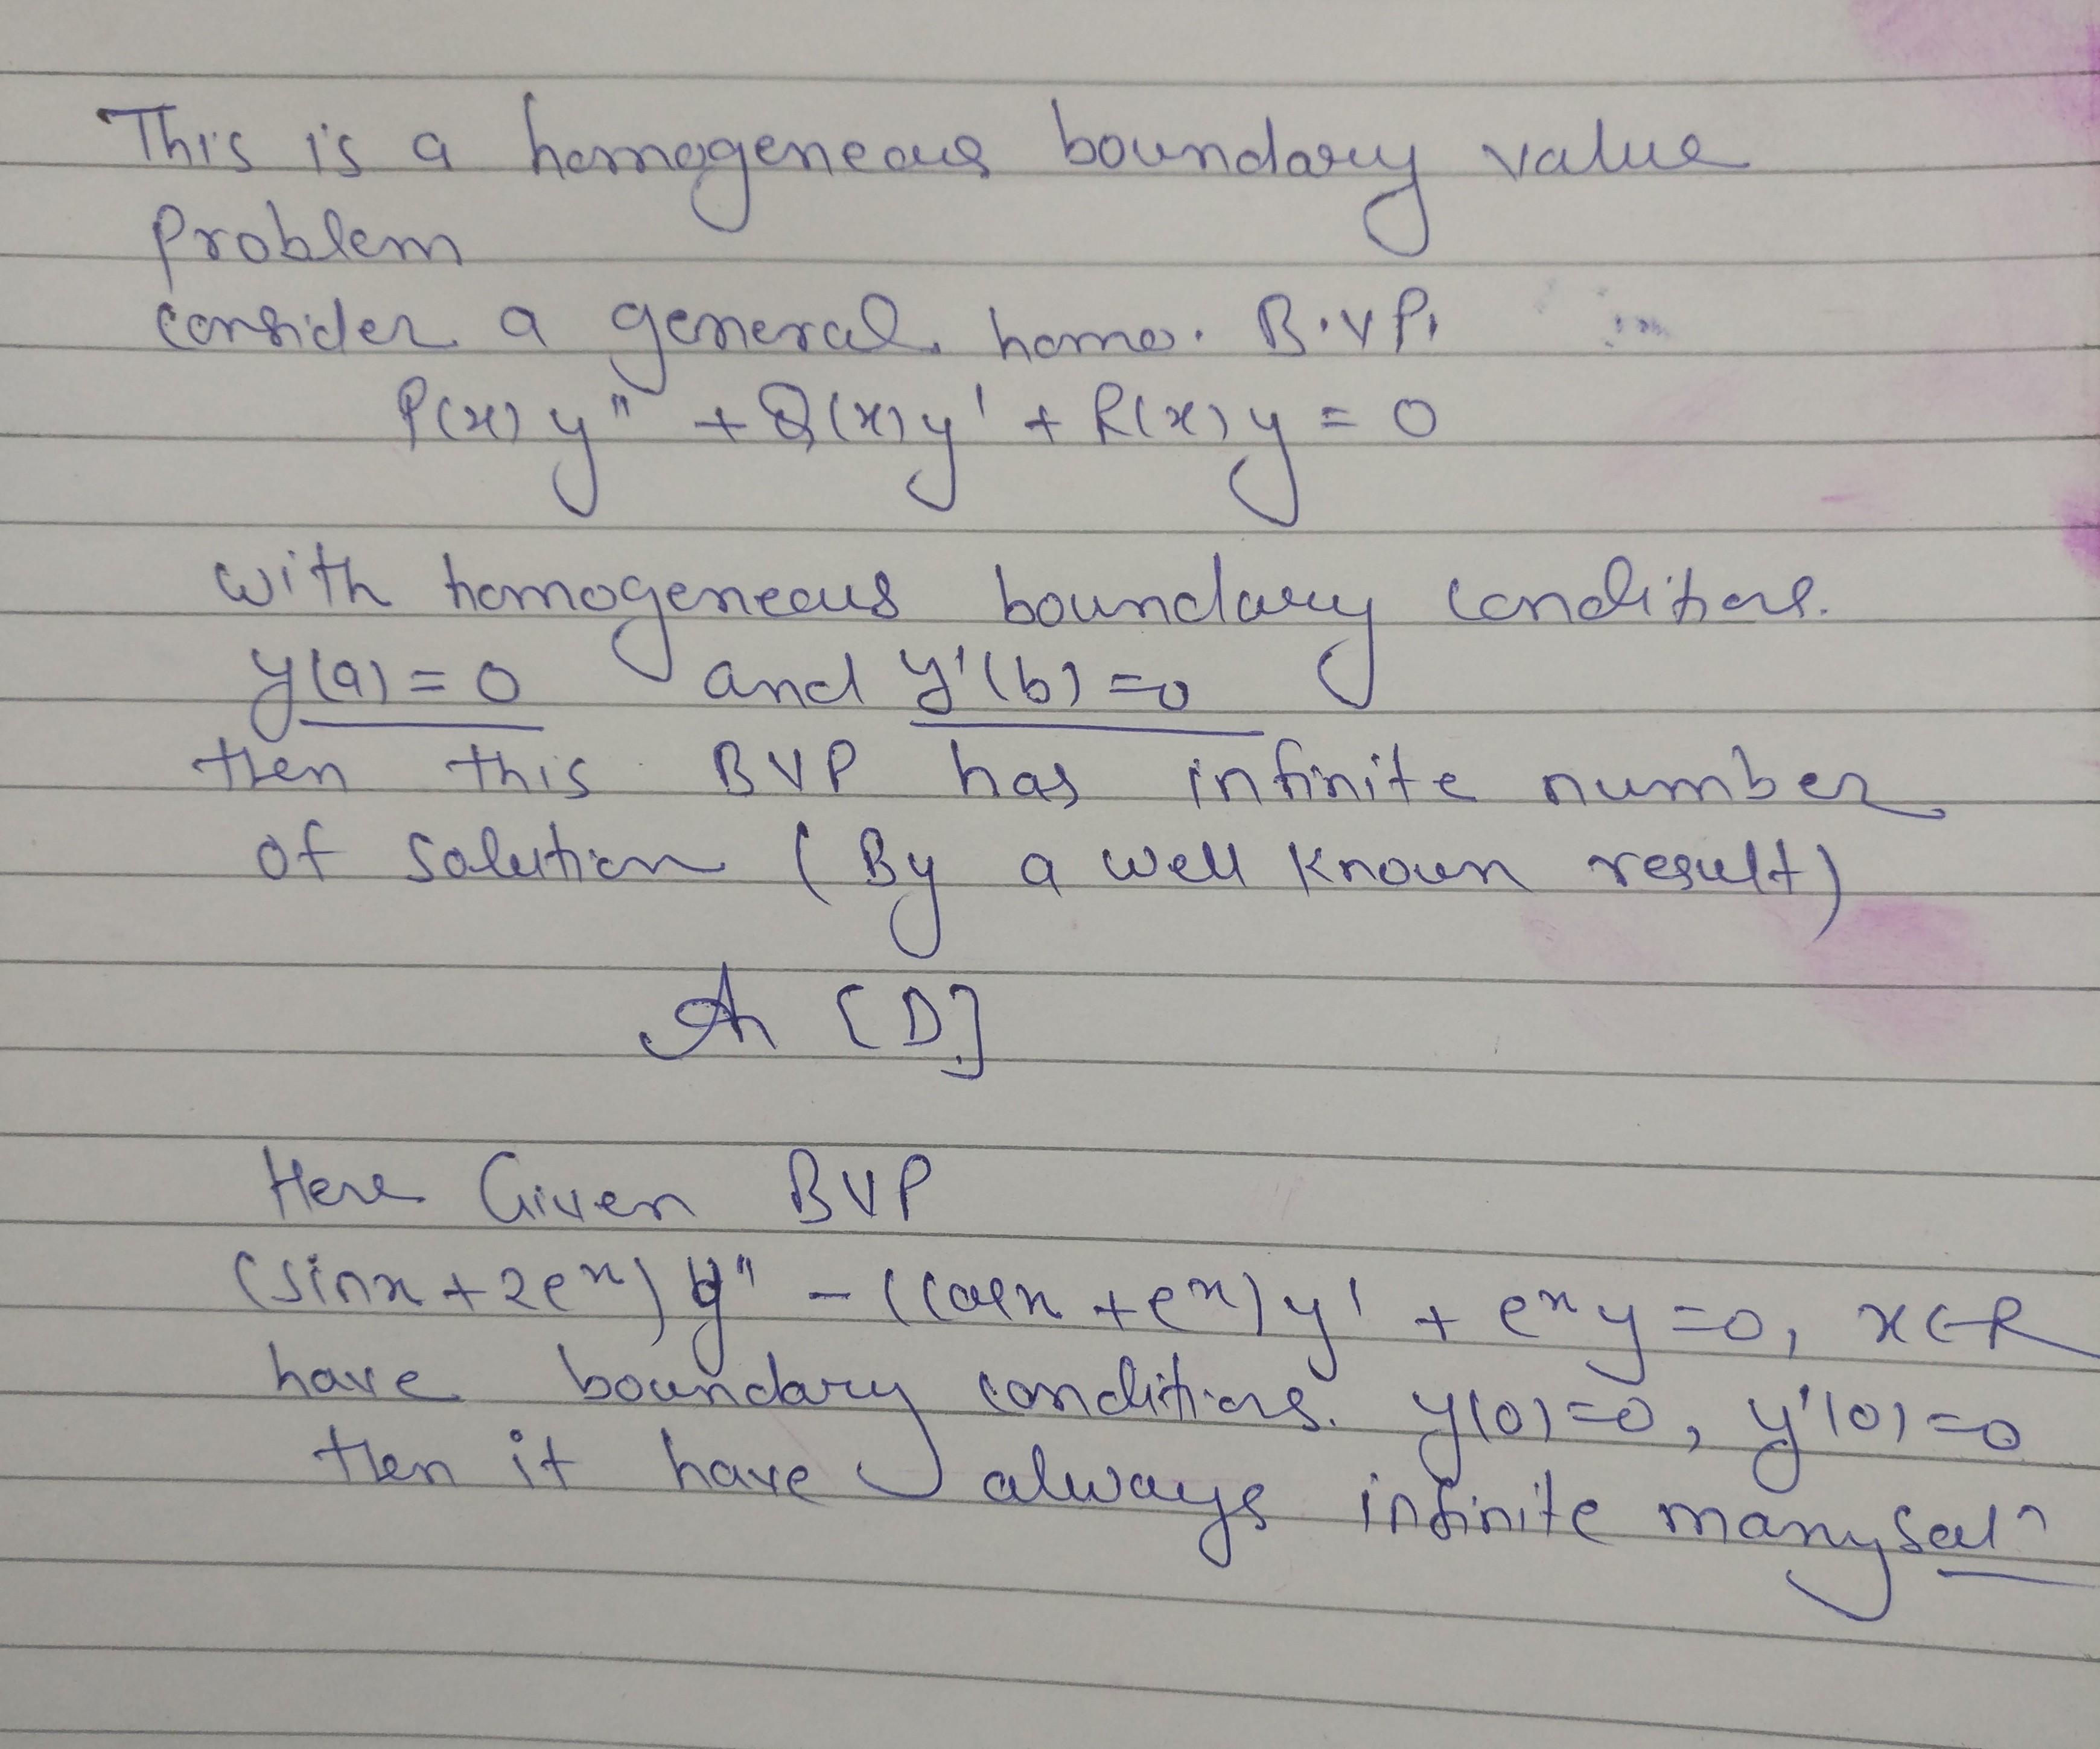 This is a homogeneous boundary value
problem
consider a general homo. B.V.P.
P(x) y" + Q(x) y' + R(x) y = 0
with homogeneous boundary conditions.
y(a) = 0 and y'(b) = 0
then this BVP has infinite number
of solution (By a well known result)
[D]
Here Given BVP
(sinx + 2eˣ) y" - ((cosx + eˣ) y' + eˣ y = 0, x ∈ R
have boundary conditions. y(0) = 0, y'(0) = 0
then it have always infinite many solⁿ